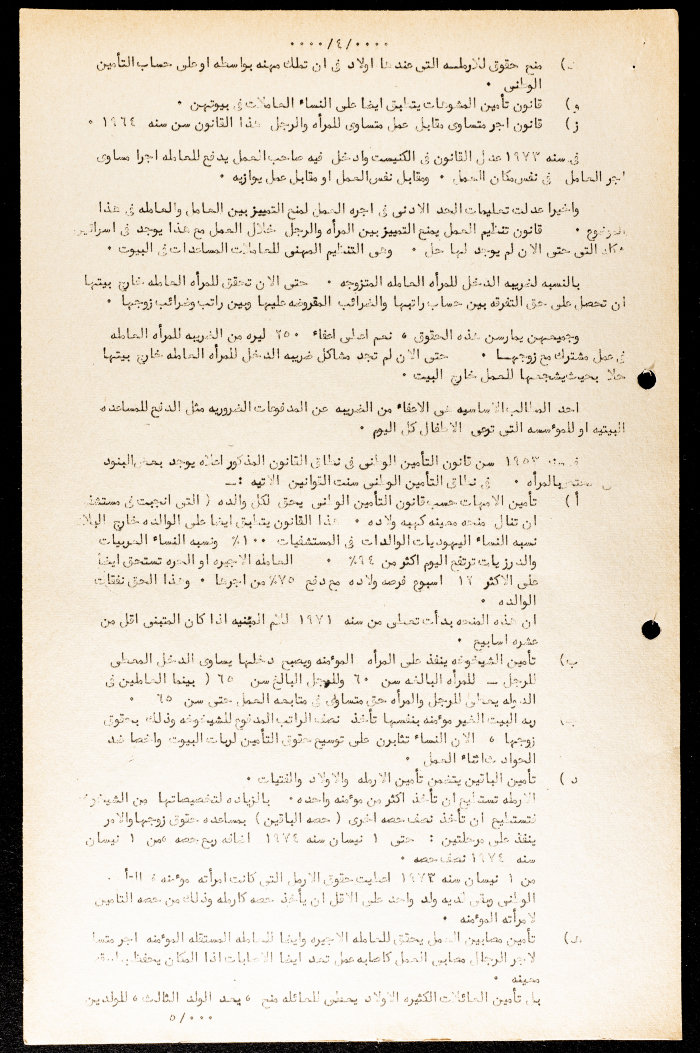 ٠٠٠٠/٤/٠٠٠٠
منح حقوق للارمله التى عندها اولاد فى ان تملك مهنه بواسطه او على حساب التأمين
الوطنى ٠
و) قانون تأمين المشوهات يتطبق ايضا على النساء العاملات فى بيوتهن ٠
ز) قانون اجر متساوى مقابل عمل متساوى للمرأه والرجل هذا القانون سن سنه ١٩٦٤ ٠
فى سنه ١٩٧٣ عدل القانون فى الكنيست وادخل فيه صاحب العمل يدفع للعامله اجرا مساوى
اجر العامل فى نفس مكان العمل ٠ ومقابل نفس العمل او مقابل عمل يوازيه ٠
واخيرا عدلت تعليمات الحد الادنى فى اجره العمل لمنع التمييز بين العامل والعامله فى هذا
الموضوع ٠ قانون تنظيم العمل يمنع التمييز بين المرأه والرجل خلال العمل مع هذا يوجد فى اسرائيل
التى حتى الان لم يوجد لها حل ٠ وهى التنظيم المهنى للعاملات المساعدات فى البيوت ٠
بالنسبه لضريبه الدخل للمرأه العامله المتزوجه ٠ حتى الان تحقق للمرأه العامله خارج بيتها
ان تحصل على حق التفرقه بين حساب راتبها والضرائب المفروضه عليها وبين راتب وضرائب زوجها ٠
وجميعهن يمارسن هذه الحقوق ، نعم اعطى اعفاء ٢٥٠ ليره من الضريبه للمرأه العامله
فى عمل مشترك مع زوجها ٠ حتى الان لم تجد مشاكل ضريبه الدخل للمرأه العامله خارج بيتها
حلا بحيث يشجعها للعمل خارج البيت ٠
احد المطالب الاساسيه هى الاعفاء من الضريبه عن المدفوعات الضروريه مثل الدفع للمساعده
البيتيه او للمؤسسه التى ترعى الاطفال كل اليوم ٠
سنه ١٩٥٣ سن قانون التأمين الوطنى فى نطاق القانون المذكور اعلاه يوجد بعض البنود
بالمرأه ٠ فى نطاق التأمين الوطنى سنت القوانين الاتيه :ـ
أ) تأمين الامهات حسب قانون التأمين الوطنى يحق لكل والده ( التى انجبت فى مستشفى
ان تنال منحه معينه كهبه ولاده ٠ هذا القانون يتطبق ايضا على الوالده خارج البلاد
نسبه النساء اليهوديات الوالدات فى المستشفيات ١٠٠٪ ونسبه النساء العربيات
والدرزيات ترتفع اليوم اكثر من ٩٤٪ ٠ العامله الاجيره او الحره تستحق ايضا
على الاكثر ١٢ اسبوع فرصه ولاده مع دفع ٧٥٪ من اجرها ٠ وهذا الحق نفقات
الوالده ٠
ان هذه المنحه بدأت تعطى من سنه ١٩٧١ للام المتبنيه اذا كان المتبنى اقل من
عشره اسابيع ٠
ب) تأمين الشيخوخه ينفذ على المرأه المؤمنه ويصبح دخلها يساوى الدخل المعطى
للرجل ـ للمرأه البالغه سن ٦٠ وللرجل البالغ سن ٦٥ ( بينما العاملين فى
الدوله يعطى للرجل والمرأه حق متساوى فى متابعه العمل حتى سن ٦٥ ٠
ربه البيت الغير مؤمنه بنفسها تأخذ نصف الراتب المدفوع للشيخوخه وذلك بحقوق
زوجها ، الان النساء تثابرن على توسيع حقوق التأمين لربات البيوت واخصا ضد
الحوادث اثناء العمل ٠
د ) تأمين الباقين يتضمن تأمين الارمله والاولاد والفتيات ٠
الارمله تستطيع ان تأخذ اكثر من مؤمنه واحده ٠ بالزياده لتخصيصاتها من الشيخوخه
تستطيع ان تأخذ نصف حصه اخرى ( حصه الباقين ) بمساعده حقوق زوجها والامر
ينفذ على مرحلتين : حتى ١ نيسان سنه ١٩٧٤ اضافه ربع حصه ،من ١ نيسان
سنه ١٩٧٤ نصف حصه ٠
من ١ نيسان سنه ١٩٧٣ اعطيت حقوق الارمل التى كانت امرأته مؤمنه ،
الوطنى وبقى لديه ولد واحد على الاقل ان يأخذ حصه كارمله وذلك من حصه التامين
لامرأته المؤمنه ٠
تأمين مصابين العمل يحقق للعامله الاجيره وايضا للعامله المستقله المؤمنه اجر
لاجر الرجال مصابى العمل كاصابه عمل تعد ايضا الاصابات اذا المكان يحفظ
معينه ٠
بل تأمين العائلات الكثيره الاولاد يعطى للعائله منح ، بعد الولد الثالث ، للمولدين
٥/٠٠٠